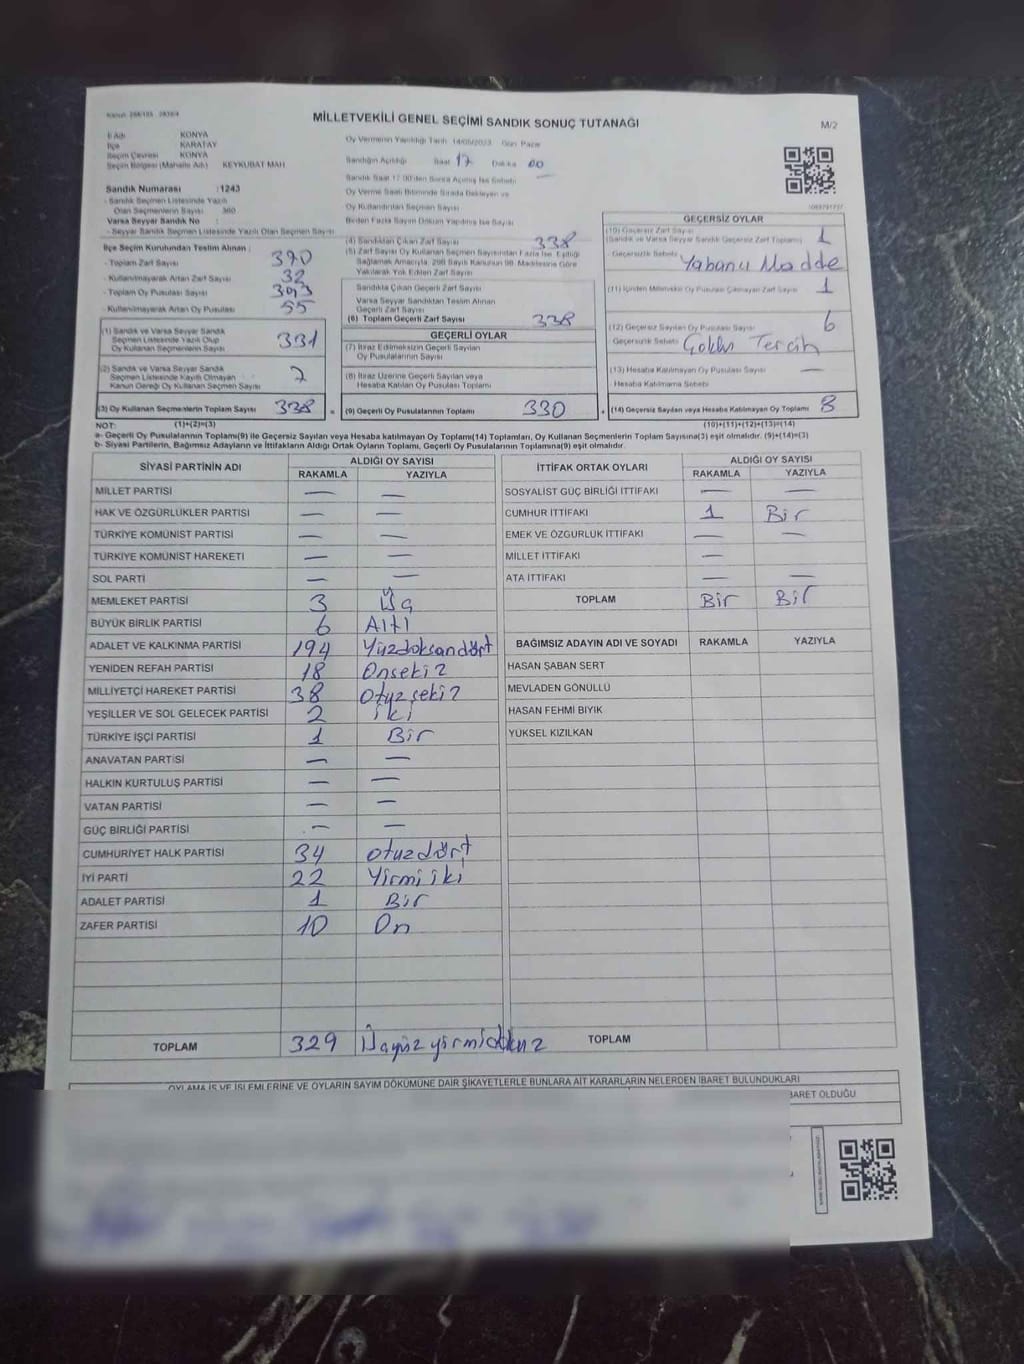 MİLLETVEKİLİ GENEL SEÇİMİ SANDIK SONUÇ TUTANAĞI
M/2
İl Adı KONYA
İlçe KARATAY
Seçim Çevresi KONYA
Seçim Bölgesi (Mahalle Adı) KEYKUBAT MAH
Sandık Numarası : 1243
- Sandık Seçmen Listesinde Yazılı
Olan Seçmenlerin Sayısı 360
Varsa Seyyar Sandık No :
- Seyyar Sandık Seçmen Listesinde Yazılı Olan Seçmen Sayısı
Oy Vermenin Yapıldığı Tarih 14/05/2023 Gün Pazar
Sandığın Açıldığı Saat 17 Dakika 00
Sandık Saat 17:00'den Sonra Açılmış İse Sebebi
Oy Verme Saati Bitiminde Sırada Bekleyen ve
Oy Kullandırılan Seçmen Sayısı
Birden Fazla Sayım Döküm Yapılmış İse Sayısı
İlçe Seçim Kurulundan Teslim Alınan :
- Toplam Zarf Sayısı 370
- Kullanılmayarak Artan Zarf Sayısı 32
- Toplam Oy Pusulası Sayısı 393
- Kullanılmayarak Artan Oy Pusulası 55
(1) Sandık ve Varsa Seyyar Sandık
Seçmen Listesinde Yazılı Olup
Oy Kullanan Seçmenlerin Sayısı 331
(2) Sandık ve Varsa Seyyar Sandık
Seçmen Listesinde Kayıtlı Olmayan
Kanun Gereği Oy Kullanan Seçmen Sayısı 7
(3) Oy Kullanan Seçmenlerin Toplam Sayısı 338 =
(4) Sandıktan Çıkan Zarf Sayısı 338
(5) Zarf Sayısı Oy Kullanan Seçmen Sayısından Fazla İse Eşitliği
Sağlamak Amacıyla, 298 Sayılı Kanunun 98. Maddesine Göre
Yakılarak Yok Edilen Zarf Sayısı
Sandıkta Çıkan Geçerli Zarf Sayısı
Varsa Seyyar Sandıktan Teslim Alınan
Geçerli Zarf Sayısı
(6) Toplam Geçerli Zarf Sayısı 338
GEÇERLİ OYLAR
(7) İtiraz Edilmeksizin Geçerli Sayılan
Oy Pusulalarının Sayısı
(8) İtiraz Üzerine Geçerli Sayılan veya
Hesaba Katılan Oy Pusulası Toplamı
(9) Geçerli Oy Pusulalarının Toplamı 330 +
GEÇERSİZ OYLAR
(10) Geçersiz Zarf Sayısı
(Sandık ve Varsa Seyyar Sandık Geçersiz Zarf Toplamı) 1
Geçersizlik Sebebi Yabancı Madde
(11) İçinden Milletvekili Oy Pusulası Çıkmayan Zarf Sayısı 1
(12) Geçersiz Sayılan Oy Pusulası Sayısı 6
Geçersizlik Sebebi Çoklu Tercih
(13) Hesaba Katılmayan Oy Pusulası Sayısı —
Hesaba Katılmama Sebebi
(14) Geçersiz Sayılan veya Hesaba Katılmayan Oy Toplamı 8
NOT: (1)+(2)=(3) (10)+(11)+(12)+(13)=(14)
a- Geçerli Oy Pusulalarının Toplamı(9) ile Geçersiz Sayılan veya Hesaba katılmayan Oy Toplamı(14) Toplamları, Oy Kullanan Seçmenlerin Toplam Sayısına(3) eşit olmalıdır. (9)+(14)=(3)
b- Siyasi Partilerin, Bağımsız Adayların ve İttifakların Aldığı Ortak Oyların Toplamı, Geçerli Oy Pusulalarının Toplamına(9) eşit olmalıdır.
SİYASİ PARTİNİN ADI ALDIĞI OY SAYISI
RAKAMLA YAZIYLA
MİLLET PARTİSİ — —
HAK VE ÖZGÜRLÜKLER PARTİSİ — —
TÜRKİYE KOMÜNİST PARTİSİ — —
TÜRKİYE KOMÜNİST HAREKETİ — —
SOL PARTİ — —
MEMLEKET PARTİSİ 3 Üç
BÜYÜK BİRLİK PARTİSİ 6 Altı
ADALET VE KALKINMA PARTİSİ 194 Yüzdoksandört
YENİDEN REFAH PARTİSİ 18 Onsekiz
MİLLİYETÇİ HAREKET PARTİSİ 38 Otuzsekiz
YEŞİLLER VE SOL GELECEK PARTİSİ 2 iki
TÜRKİYE İŞÇİ PARTİSİ 1 Bir
ANAVATAN PARTİSİ — —
HALKIN KURTULUŞ PARTİSİ — —
VATAN PARTİSİ — —
GÜÇ BİRLİĞİ PARTİSİ — —
CUMHURİYET HALK PARTİSİ 34 otuzdört
İYİ PARTİ 22 Yirmiiki
ADALET PARTİSİ 1 Bir
ZAFER PARTİSİ 10 On
TOPLAM 329 Üçyüzyirmidokuz
İTTİFAK ORTAK OYLARI ALDIĞI OY SAYISI
RAKAMLA YAZIYLA
SOSYALİST GÜÇ BİRLİĞİ İTTİFAKI — —
CUMHUR İTTİFAKI 1 Bir
EMEK VE ÖZGÜRLÜK İTTİFAKI — —
MİLLET İTTİFAKI —
ATA İTTİFAKI — —
TOPLAM Bir Bir
BAĞIMSIZ ADAYIN ADI VE SOYADI RAKAMLA YAZIYLA
HASAN ŞABAN SERT
MEVLADEN GÖNÜLLÜ
HASAN FEHMİ BIYIK
YÜKSEL KIZILKAN
TOPLAM
OYLAMA İŞ VE İŞLEMLERİNE VE OYLARIN SAYIM DÖKÜMÜNE DAİR ŞİKAYETLERLE BUNLARA AİT KARARLARIN NELERDEN İBARET BULUNDUKLARI
BARET OLDUĞU